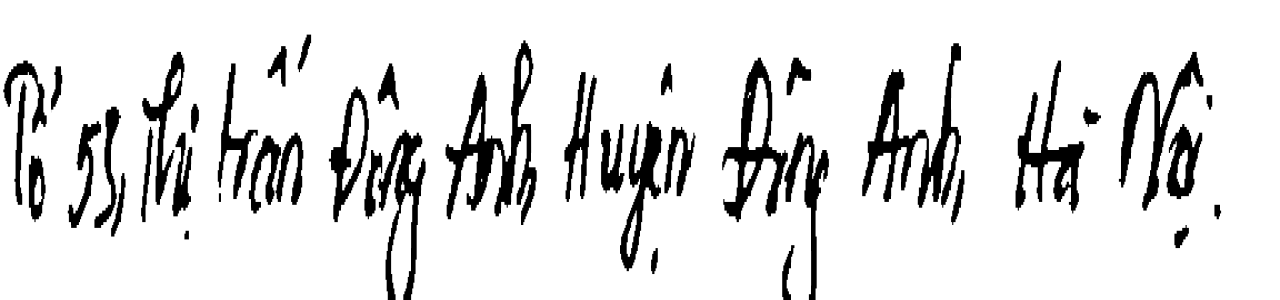 Tổ 53, Thị trấn Đông Anh, Huyện Đông Anh, Hà Nội.